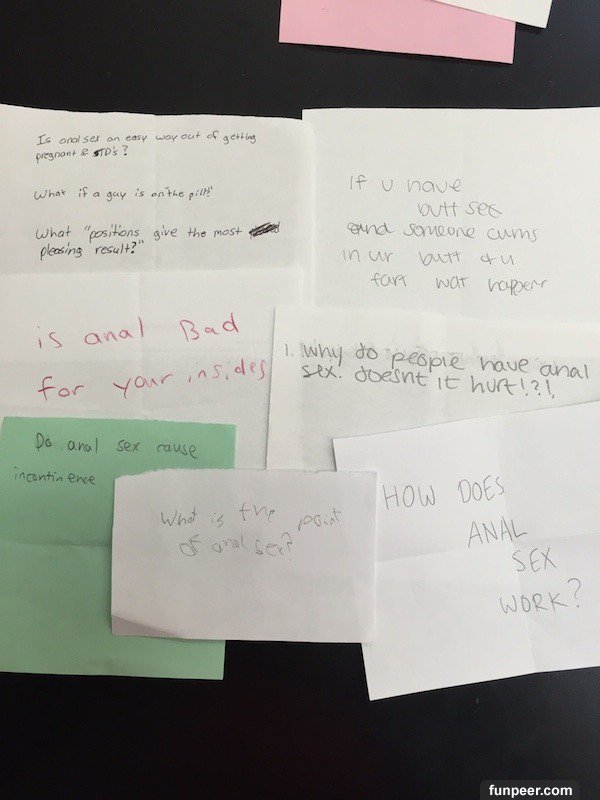 Is anal sex an easy way out of getting
pregnant & STD's?
What if a guy is on the pill?
What "positions give the most
pleasing result?"
If u have
butt sex
and someone cums
in ur butt & u
fart wat happens
is anal Bad
for your insides
1. Why do people have anal
sex. doesnt it hurt!?!
Do anal sex cause
incontinence
What is the point
of anal sex?
HOW DOES
ANAL
SEX
WORK?
funpeer.com